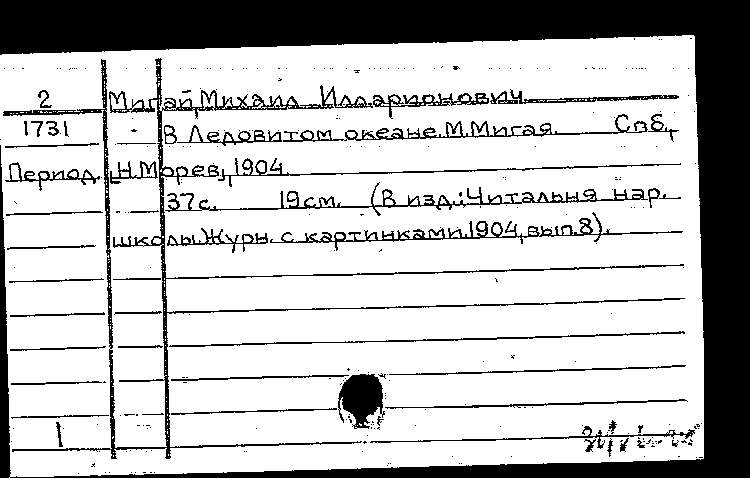 2 Мигай, Михаил Илларионович
1731 В Ледовитом океане. М. Мигая. Спб.,
Период. [Н. Морев], 1904.
37с. 19см. (В изд.: Читальня нар.
школы. Журн. с картинками. 1904, вып. 8).
1